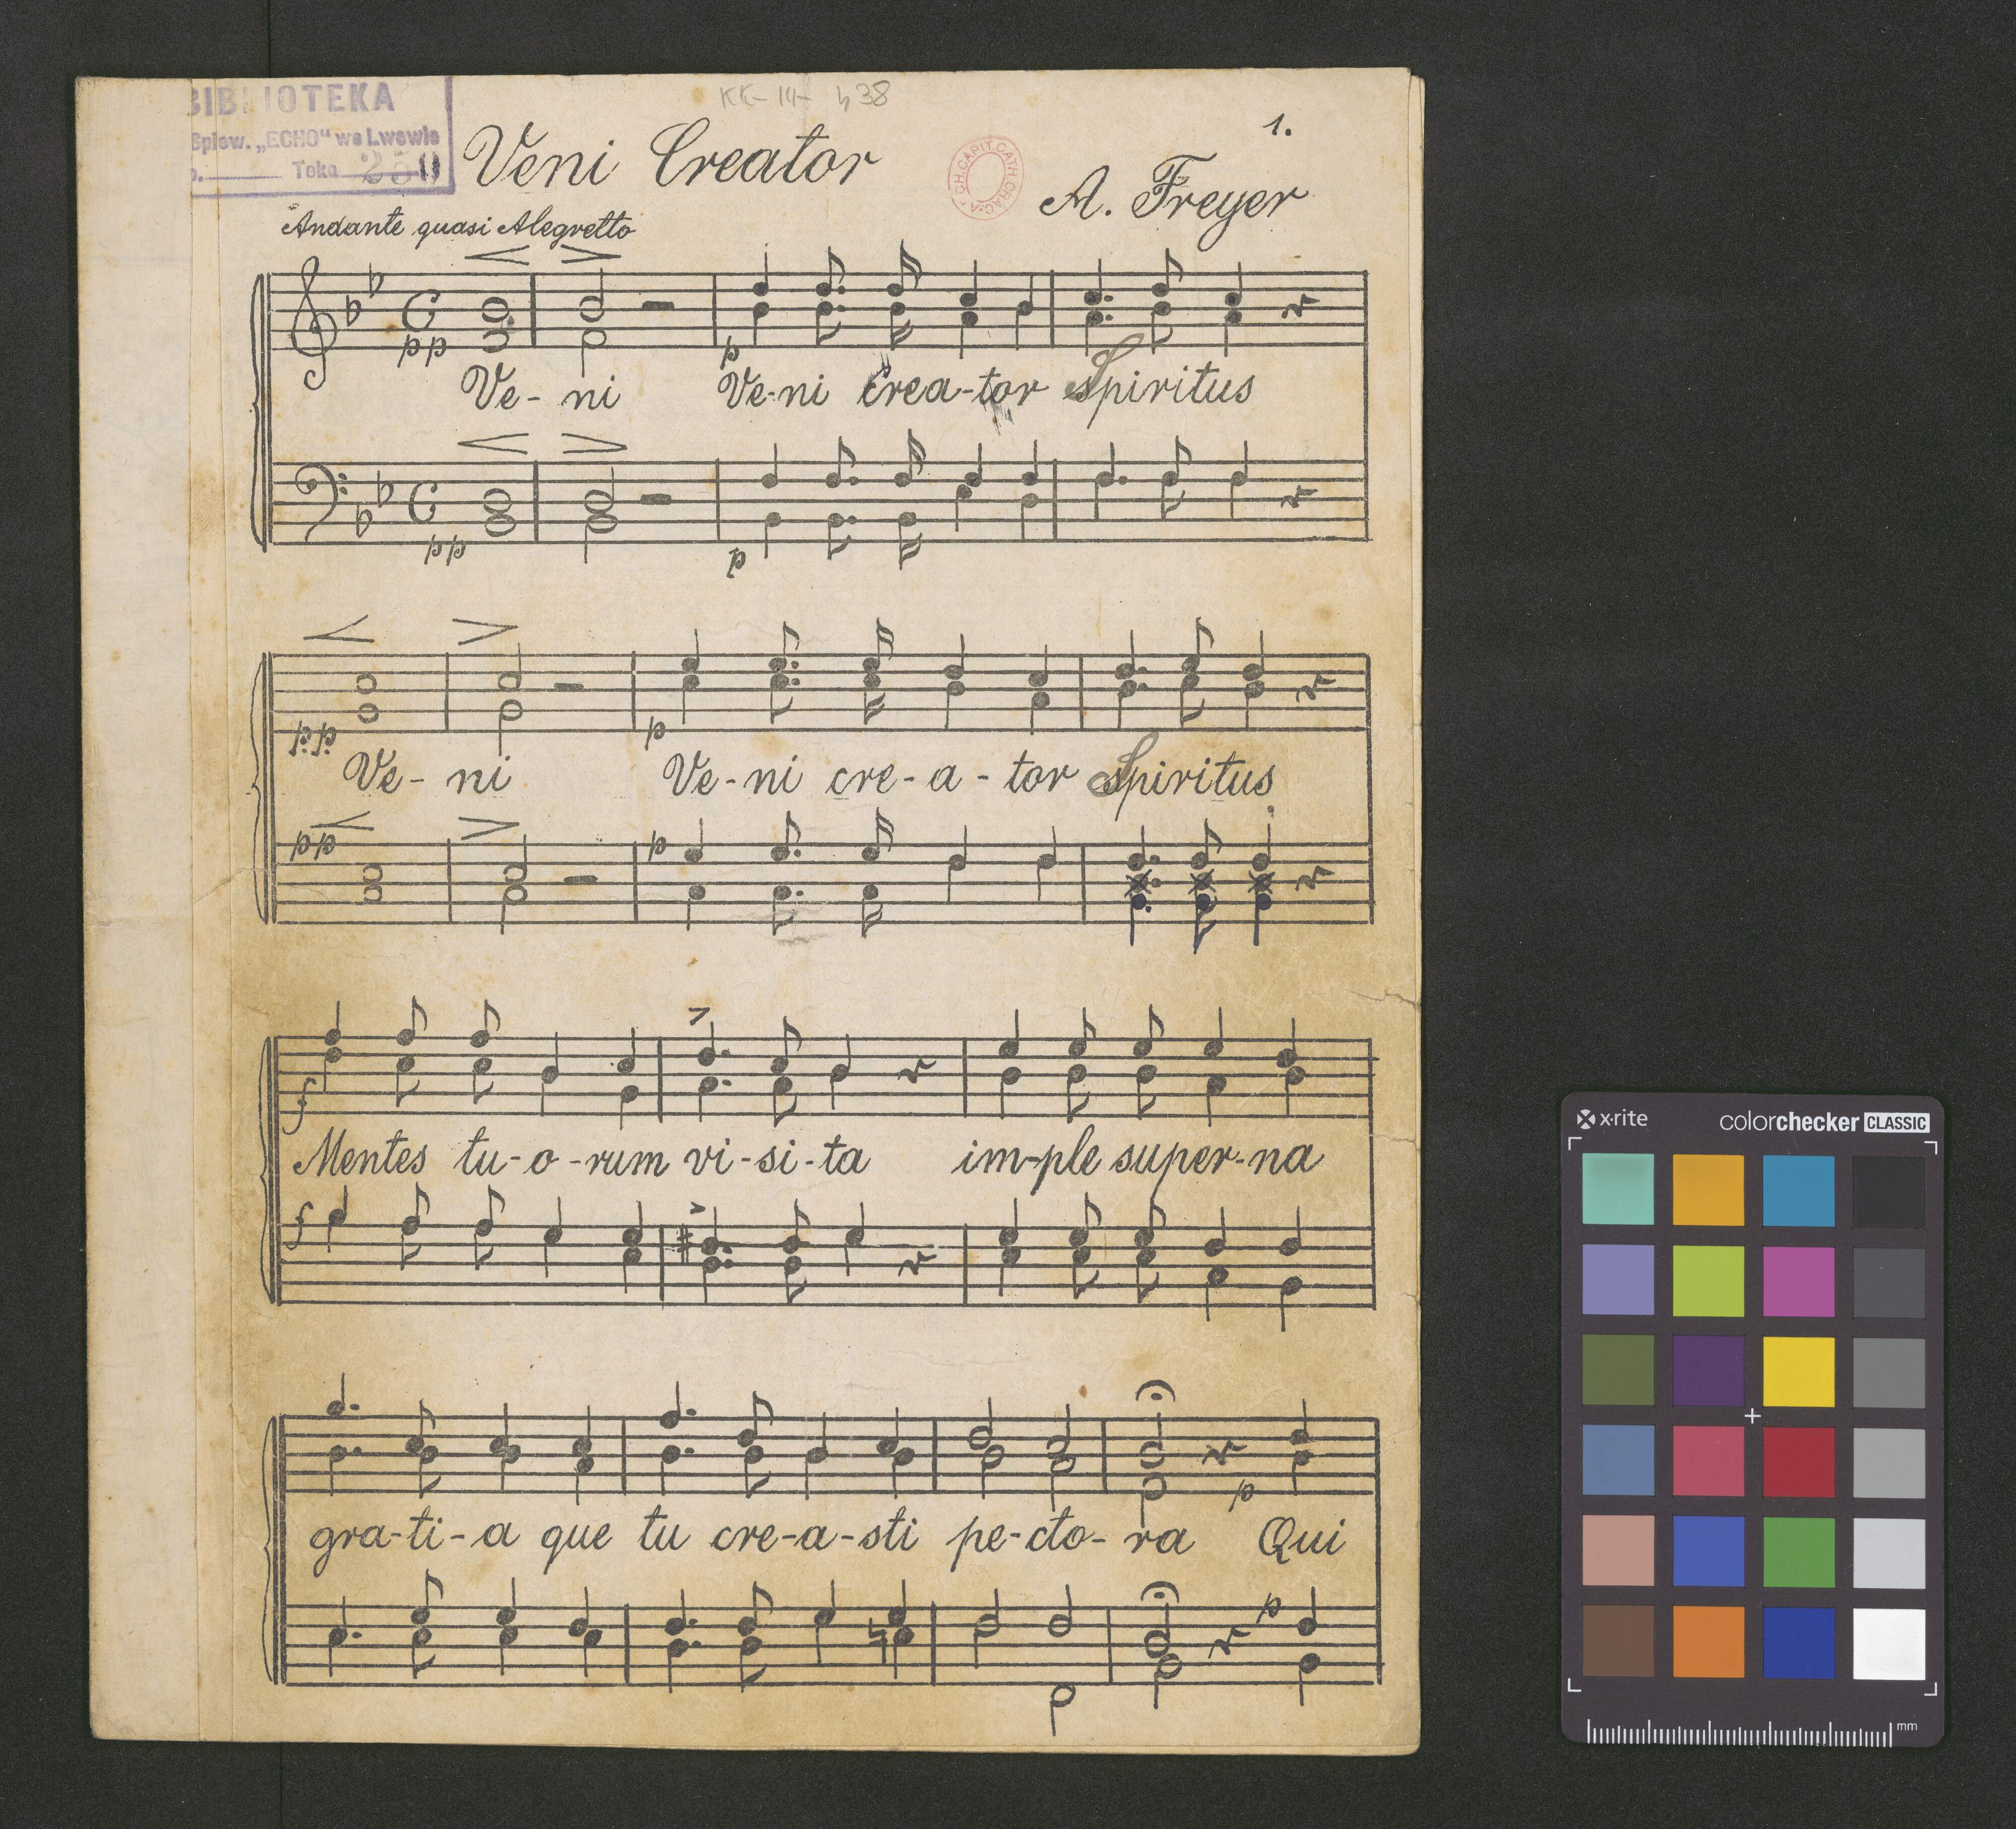 KK-14- 438
BIBLIOTEKA
Śpiew. „ECHO" we Lwowie
Teka 250
Veni Creator
1.
A. Freyer
CH.CAPIT.CATH.CRAC.
Andante quasi Alegretto
pp
p
Ve- ni Ve-ni crea-tor Spiritus
pp
p
pp
p
Ve- ni Ve-ni cre-a-tor Spiritus
pp
p
f
Mentes tu-o-rum vi-si-ta im-ple super-na
f
p
gra-ti-a que tu cre-a-sti pe-cto-ra Qui
p
x·rite colorchecker CLASSIC
mm